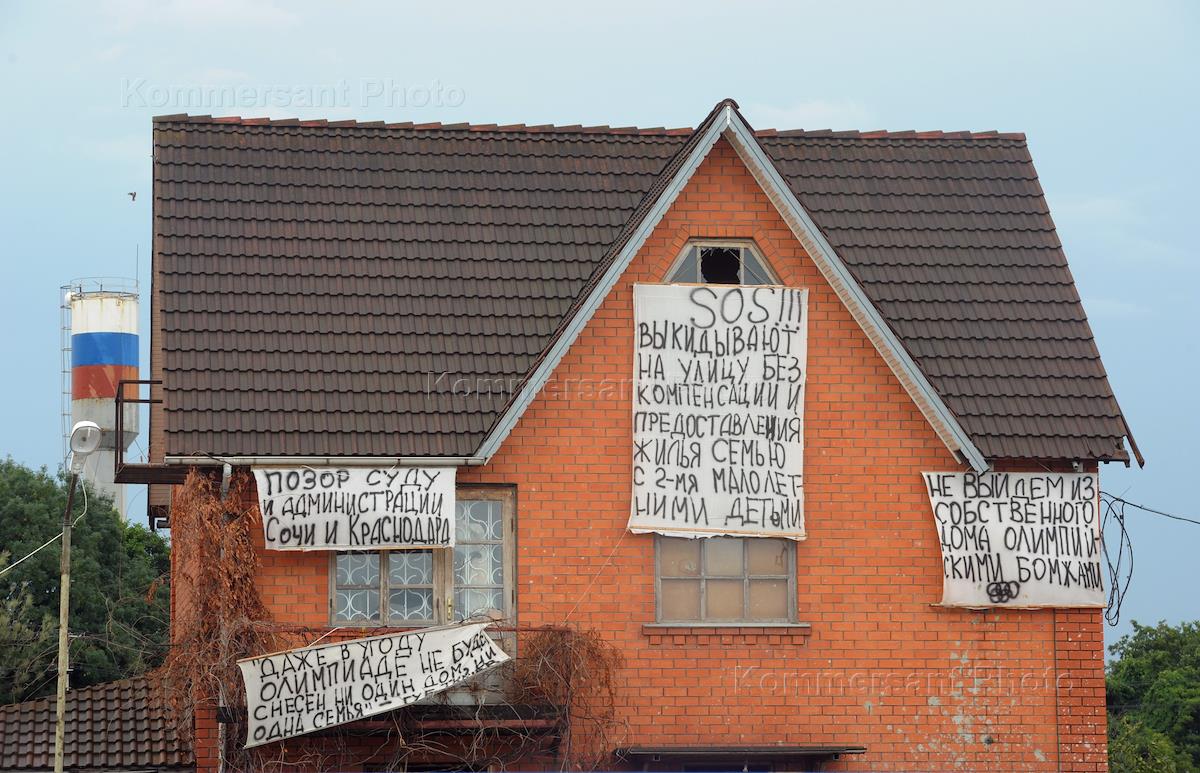 Kommersant Photo
SOS!!!
ВЫКИДЫВАЮТ
НА УЛИЦУ БЕЗ
КОМПЕНСАЦИИ И
ПРЕДОСТАВЛЕНИЯ
ЖИЛЬЯ СЕМЬЮ
С 2-МЯ МАЛОЛЕТ
НИМИ ДЕТЬМИ
Kommersant Photo
ПОЗОР СУДУ
И АДМИНИСТРАЦИИ
СОЧИ И КРАСНОДАРА
НЕ ВЫЙДЕМ ИЗ
СОБСТВЕННОГО
ДОМА ОЛИМПИЙ-
СКИМИ БОМЖАМИ
"ДАЖЕ В УГОДУ
ОЛИМПИАДЕ НЕ БУДЕТ
СНЕСЕН НИ ОДИН ДОМ, НИ
ОДНА СЕМЬЯ"-
Kommersant Photo